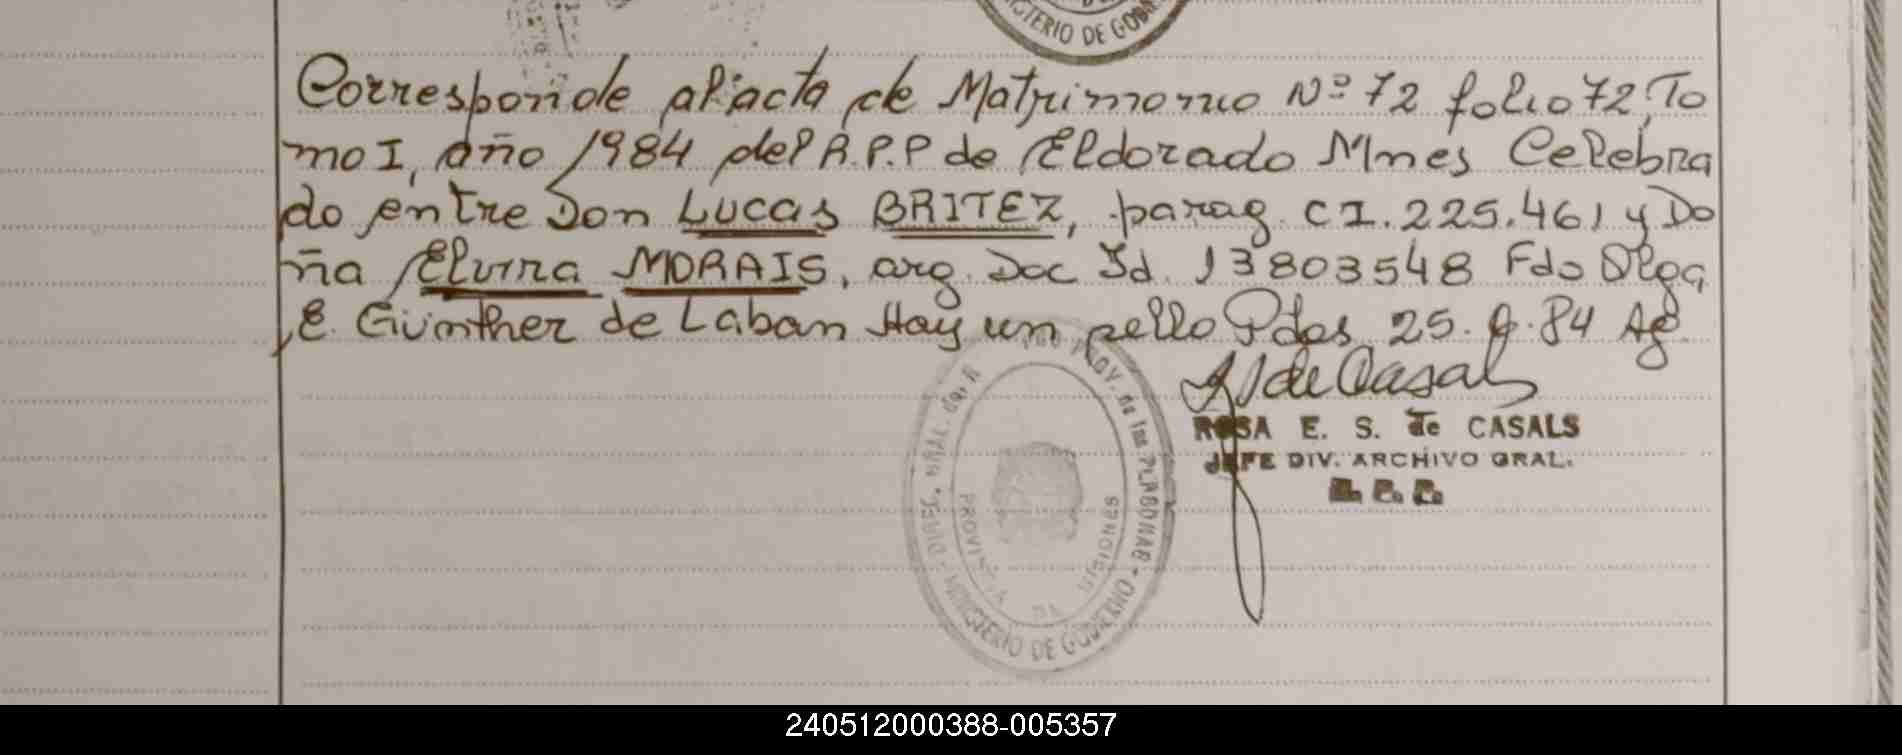 MINISTERIO DE GOB
Corresponde al acta de Matrimonio Nº 72 folio 72, To
mo I, año 1984 del R.P.P de Eldorado Mnes Celebra
do entre Don Lucas BRITEZ, parag. C I. 225.461 y Do
ña Elvira MORAIS, arg. Doc Id. 13803548 Fdo Olga
E. Günther de Laban Hay un sello Pdas 25. 9. 84 Ag
de Casals
ROSA E. S. de CASALS
JEFE DIV. ARCHIVO GRAL.
DIREC. GRAL. del R PROV. de las PERSONAS
PROVINCIA DE MISIONES
MINISTERIO DE GOBIERNO
240512000388-005357